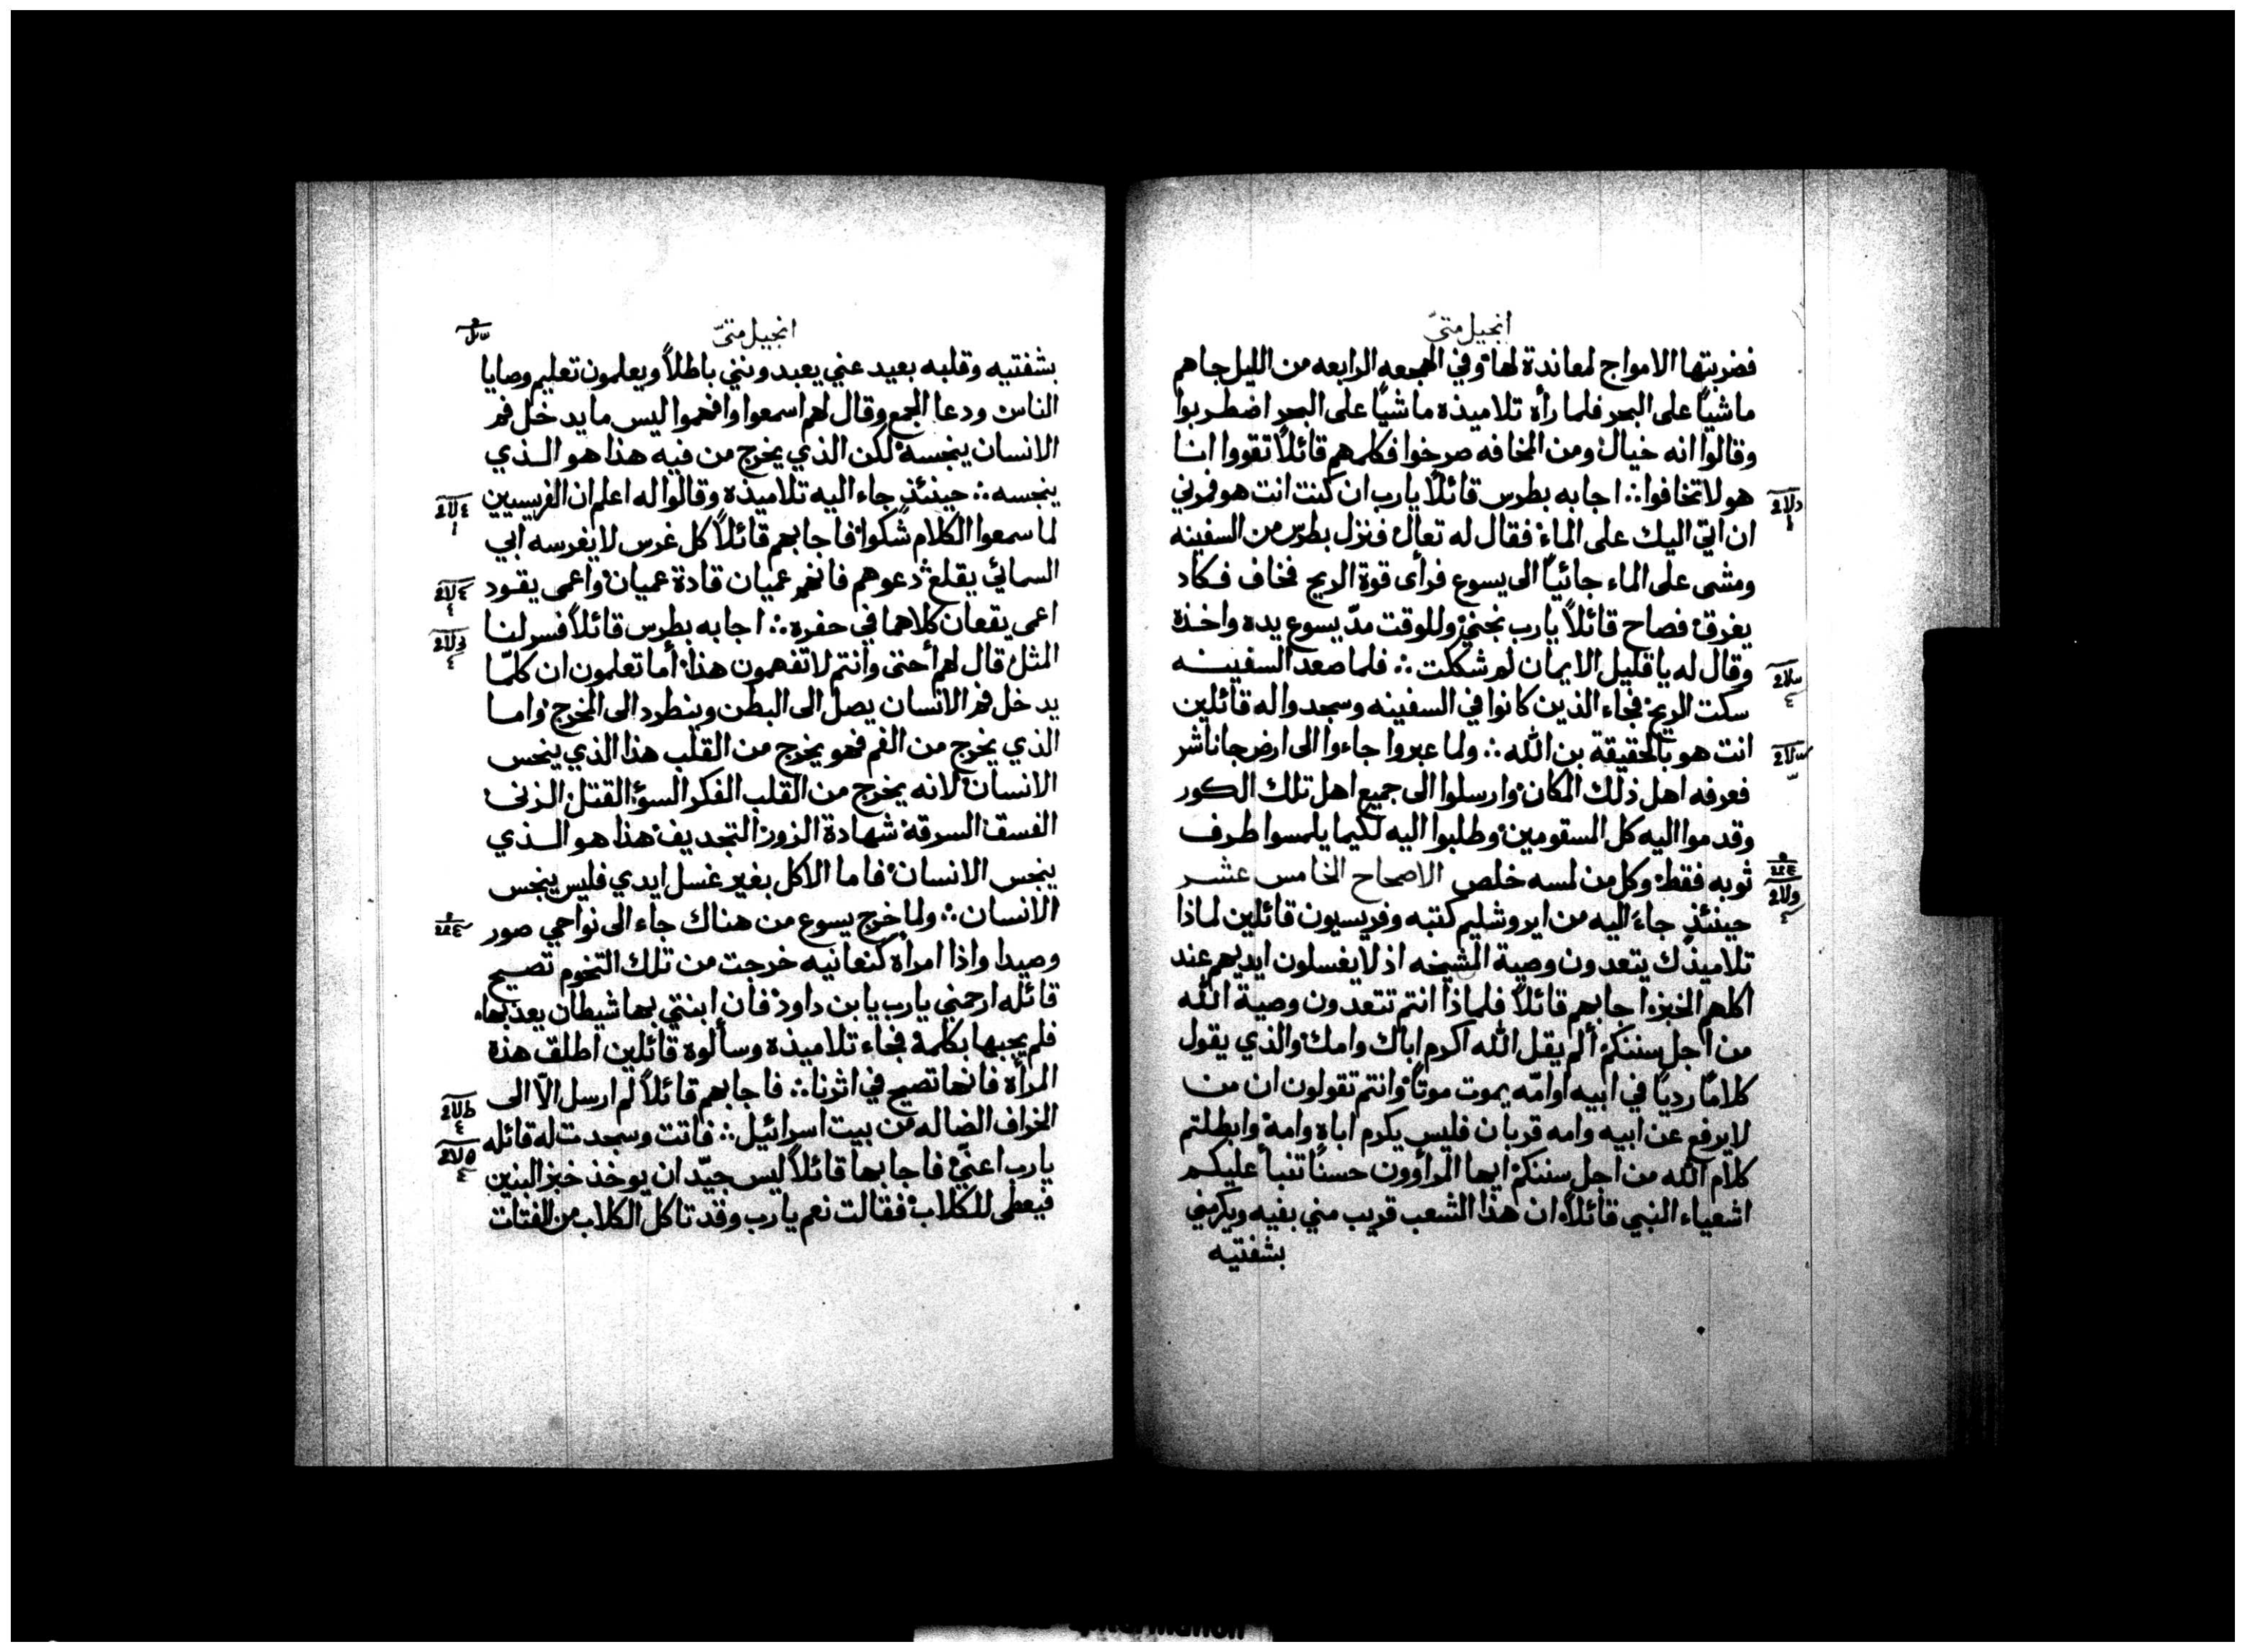 انجيل متىّ
فضربتها الامواج لمعاندة لها وفي الهجعه الرابعه من الليل جاهم
ماشياً على البحر فلما رأه تلاميذه ماشياً على البحر اضطربوا
وقالوا انه خيال ومن المخافه صرخوا فكلمهم قائلاً تقووا انا
هو لا تخافوا ∴ اجابه بطرس قائلاً يارب ان كنت انت هو فمرني
ان اتي اليك على الماء فقال له تعال فنزل بطرس من السفينه
ومشى على الماء جائياً الى يسوع فرأى قوة الريح فخاف فكاد
يغرق فصاح قائلاً يارب نجني وللوقت مدّ يسوع يده واخذه
وقال له يا قليل الايمان لم شككت ∴ فلما صعد السفينه
سكت الريح فجاء الذين كانوا في السفينه وسجدوا له قائلين
انت هو بالحقيقة بن الله ∴ ولما عبروا جاءوا الى ارض جاناشر
فعرفه اهل ذلك المكان وارسلوا الى جميع اهل تلك الكور
وقدموا اليه كل السقومين وطلبوا اليه لكيما يلمسوا طرف
ثوبه فقط وكل من لمسه خلص الاصحاح الخامس عشر
حينئذٍ جاء اليه من ايروشليم كتبه وفريسيون قائلين لماذا
تلاميذك يتعدون وصية الشيخه اذ لا يغسلون ايديهم عند
اكلهم الخبز اجابهم قائلاً فلماذا انتم تتعدون وصية الله
من اجل سننكم ألم يقل الله اكرم اباك وامك والذي يقول
كلاماً ردياً في ابيه او امّه يموت موتاً وانتم تقولون ان من
لا يرفع عن ابيه وامه قربان فليس يكرم اباه وامه وابطلتم
كلام الله من اجل سننكم ايها المرأوون حسناً تنبأ عليكم
اشعياء النبي قائلاً ان هذا الشعب قريب مني بفيه ويكرمني
بشفتيه
انجيل متىّ
بشفتيه وقلبه بعيد عني يعبدونني باطلاً ويعلمون تعليم وصايا
الناس ودعا الجمع وقال لهم اسمعوا وافهموا ليس ما يدخل فم
الانسان ينجسه لكن الذي يخرج من فيه هذا هو الذي
ينجسه ∴ حينئذٍ جاء اليه تلاميذه وقالوا له اعلم ان الفريسيين
لما سمعوا الكلام شكوا فاجابهم قائلاً كل غرس لا يغرسه ابي
السمائي يقلع دعوهم فانهم عميان قادة عميان واعمى يقود
اعمى يقعان كلاهما في حفره ∴ اجابه بطرس قائلاً فسر لنا
المثل قال لهم أحتى وانتم لا تفهمون هذا أما تعلمون ان كلمّا
يدخل فم الانسان يصل الى البطن وينطرد الى المخرج واما
الذي يخرج من الفم فهو يخرج من القلب هذا الذي ينجس
الانسان لانه يخرج من القلب الفكر السوء القتل الزنى
الفسق السرقة شهادة الزور التجديف هذا هو الذي
ينجس الانسان فاما الاكل بغير غسل ايدي فليس ينجس
الانسان ∴ ولما خرج يسوع من هناك جاء الى نواحي صور
وصيدا واذا امراه كنعانيه خرجت من تلك التخوم تصيح
قائله ارحمني يارب يا بن داود فان ابنتي بها شيطان يعذبها
فلم يجبها بكلمة فجاء تلاميذه وسألوه قائلين اطلق هذه
المرأة فانها تصيح في اثرنا ∴ فاجابهم قائلاً لم ارسل الاّ الى
الخراف الضاله من بيت اسرائيل ∴ فاتت وسجدت له قائله
يارب اعنّي فاجابها قائلاً ليس جيّد ان يوخذ خبز البنين
فيعطى للكلاب فقالت نعم يارب وقد تاكل الكلاب من الفتات